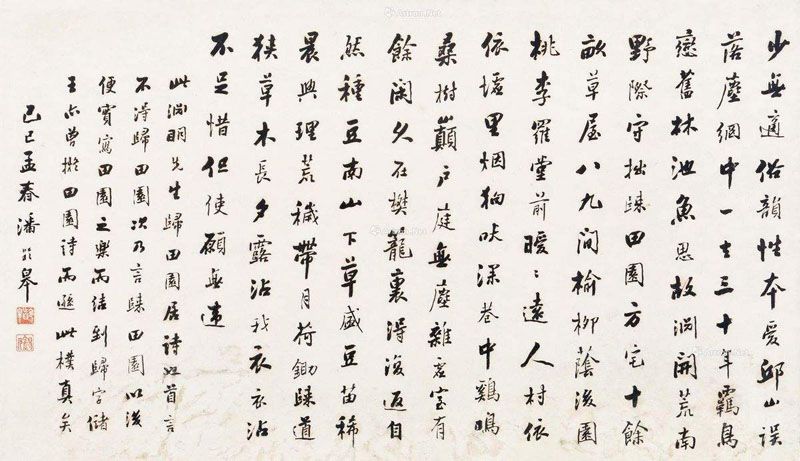 少無適俗韻性本愛邱山誤
落塵網中一去三十年羈鳥
戀舊林池魚思故淵開荒南
野際守拙歸田園方宅十餘
畝草屋八九間榆柳蔭後園
桃李羅堂前曖〻遠人村依
依墟里烟狗吠深巷中鷄鳴
桑樹巔戶庭無塵雜虛室有
餘閑久在樊籠裏得復返自
然種豆南山下草盛豆苗稀
晨興理荒穢帶月荷鋤歸道
狹草木長夕露沾我衣衣沾
不足惜但使願無違
此淵明先生歸田園居詩起首言
不得歸田園次乃言歸田園以後
便實寫田園之樂而結到歸字儲
王亦曾擬田園詩而遜此樸真矣
己巳孟春潘齡皋